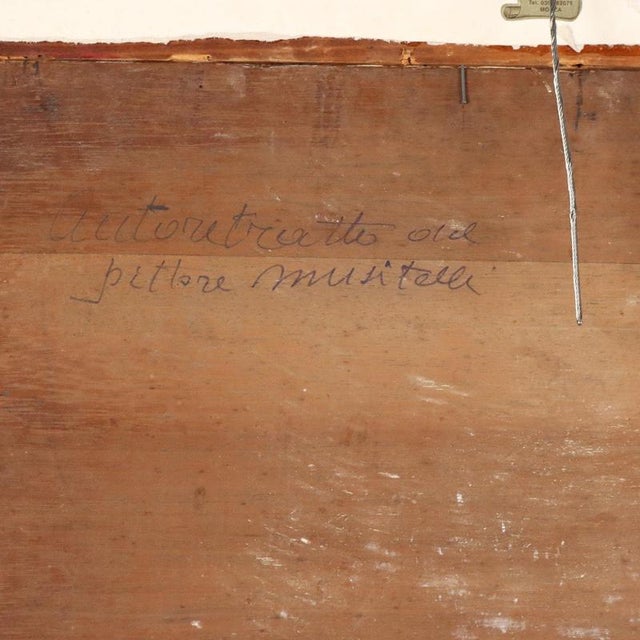 MONZA
autoretratto del
pittore musitelli